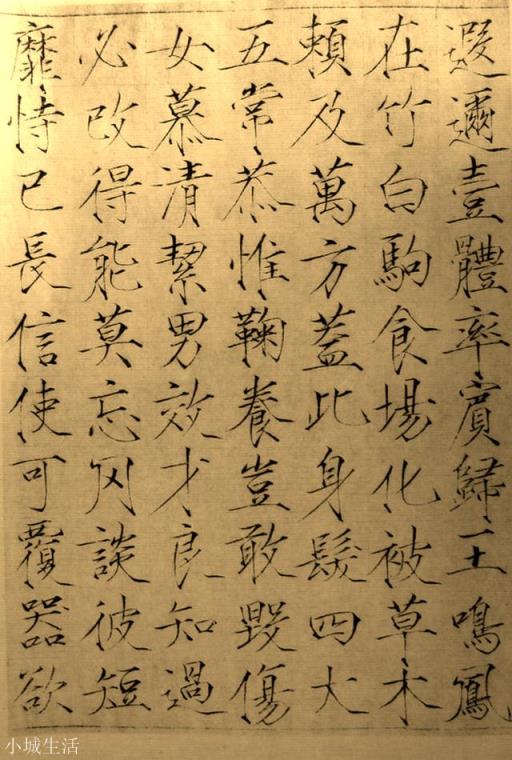 遐邇壹體率賓歸王鳴鳳
在竹白駒食場化被草木
頼及萬方蓋此身髮四大
五常恭惟鞠養豈敢毀傷
女慕清絜男效才良知過
必改得能莫忘罔談彼短
靡恃已長信使可覆器欲
小城生活